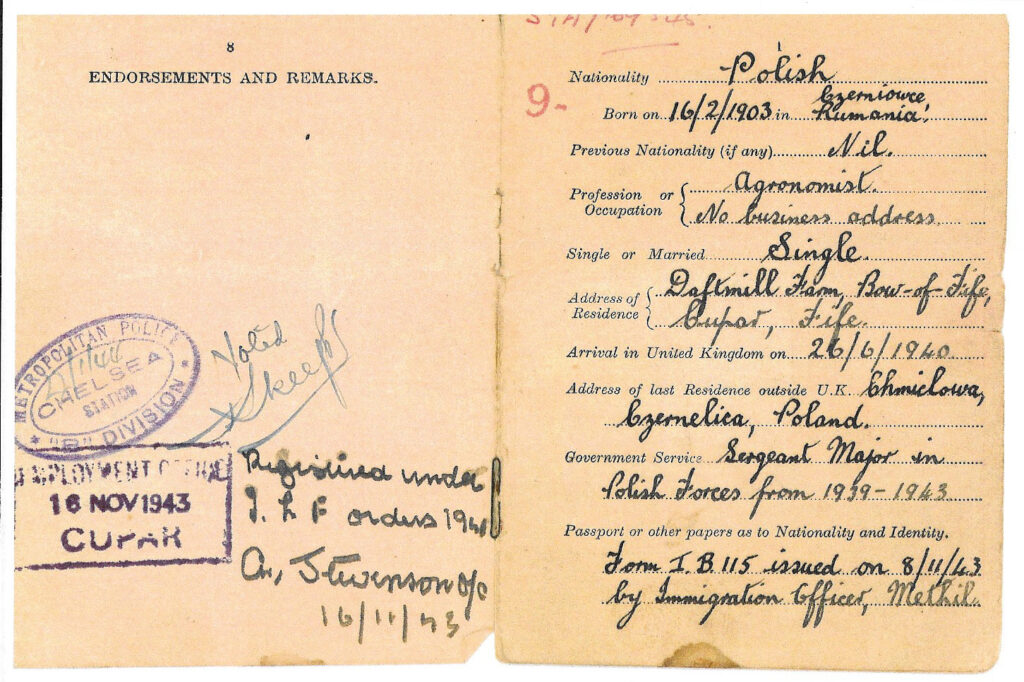 8
ENDORSEMENTS AND REMARKS.
METROPOLITAN POLICE
1/44
CHELSEA
STATION
"B" DIVISION
Noted
EMPLOYMENT OFFICE
16 NOV 1943
CUPAR
Registered under
I. L F orders 1941
A. Stevenson
16/11/43
9-
Nationality Polish
Born on 16/2/1903 in Czerniowce, Rumania.
Previous Nationality (if any) Nil.
Profession or Occupation Agronomist.
No business address.
Single or Married Single.
Address of Residence Daftmill Farm, Bow-of-Fife,
Cupar, Fife.
Arrival in United Kingdom on 26/6/1940
Address of last Residence outside U.K. Chmielowa,
Czernelica, Poland.
Government Service Sergeant Major in
Polish Forces from 1939-1943
Passport or other papers as to Nationality and Identity.
Form I.B 115 issued on 8/11/43
by Immigration Officer, Methil.